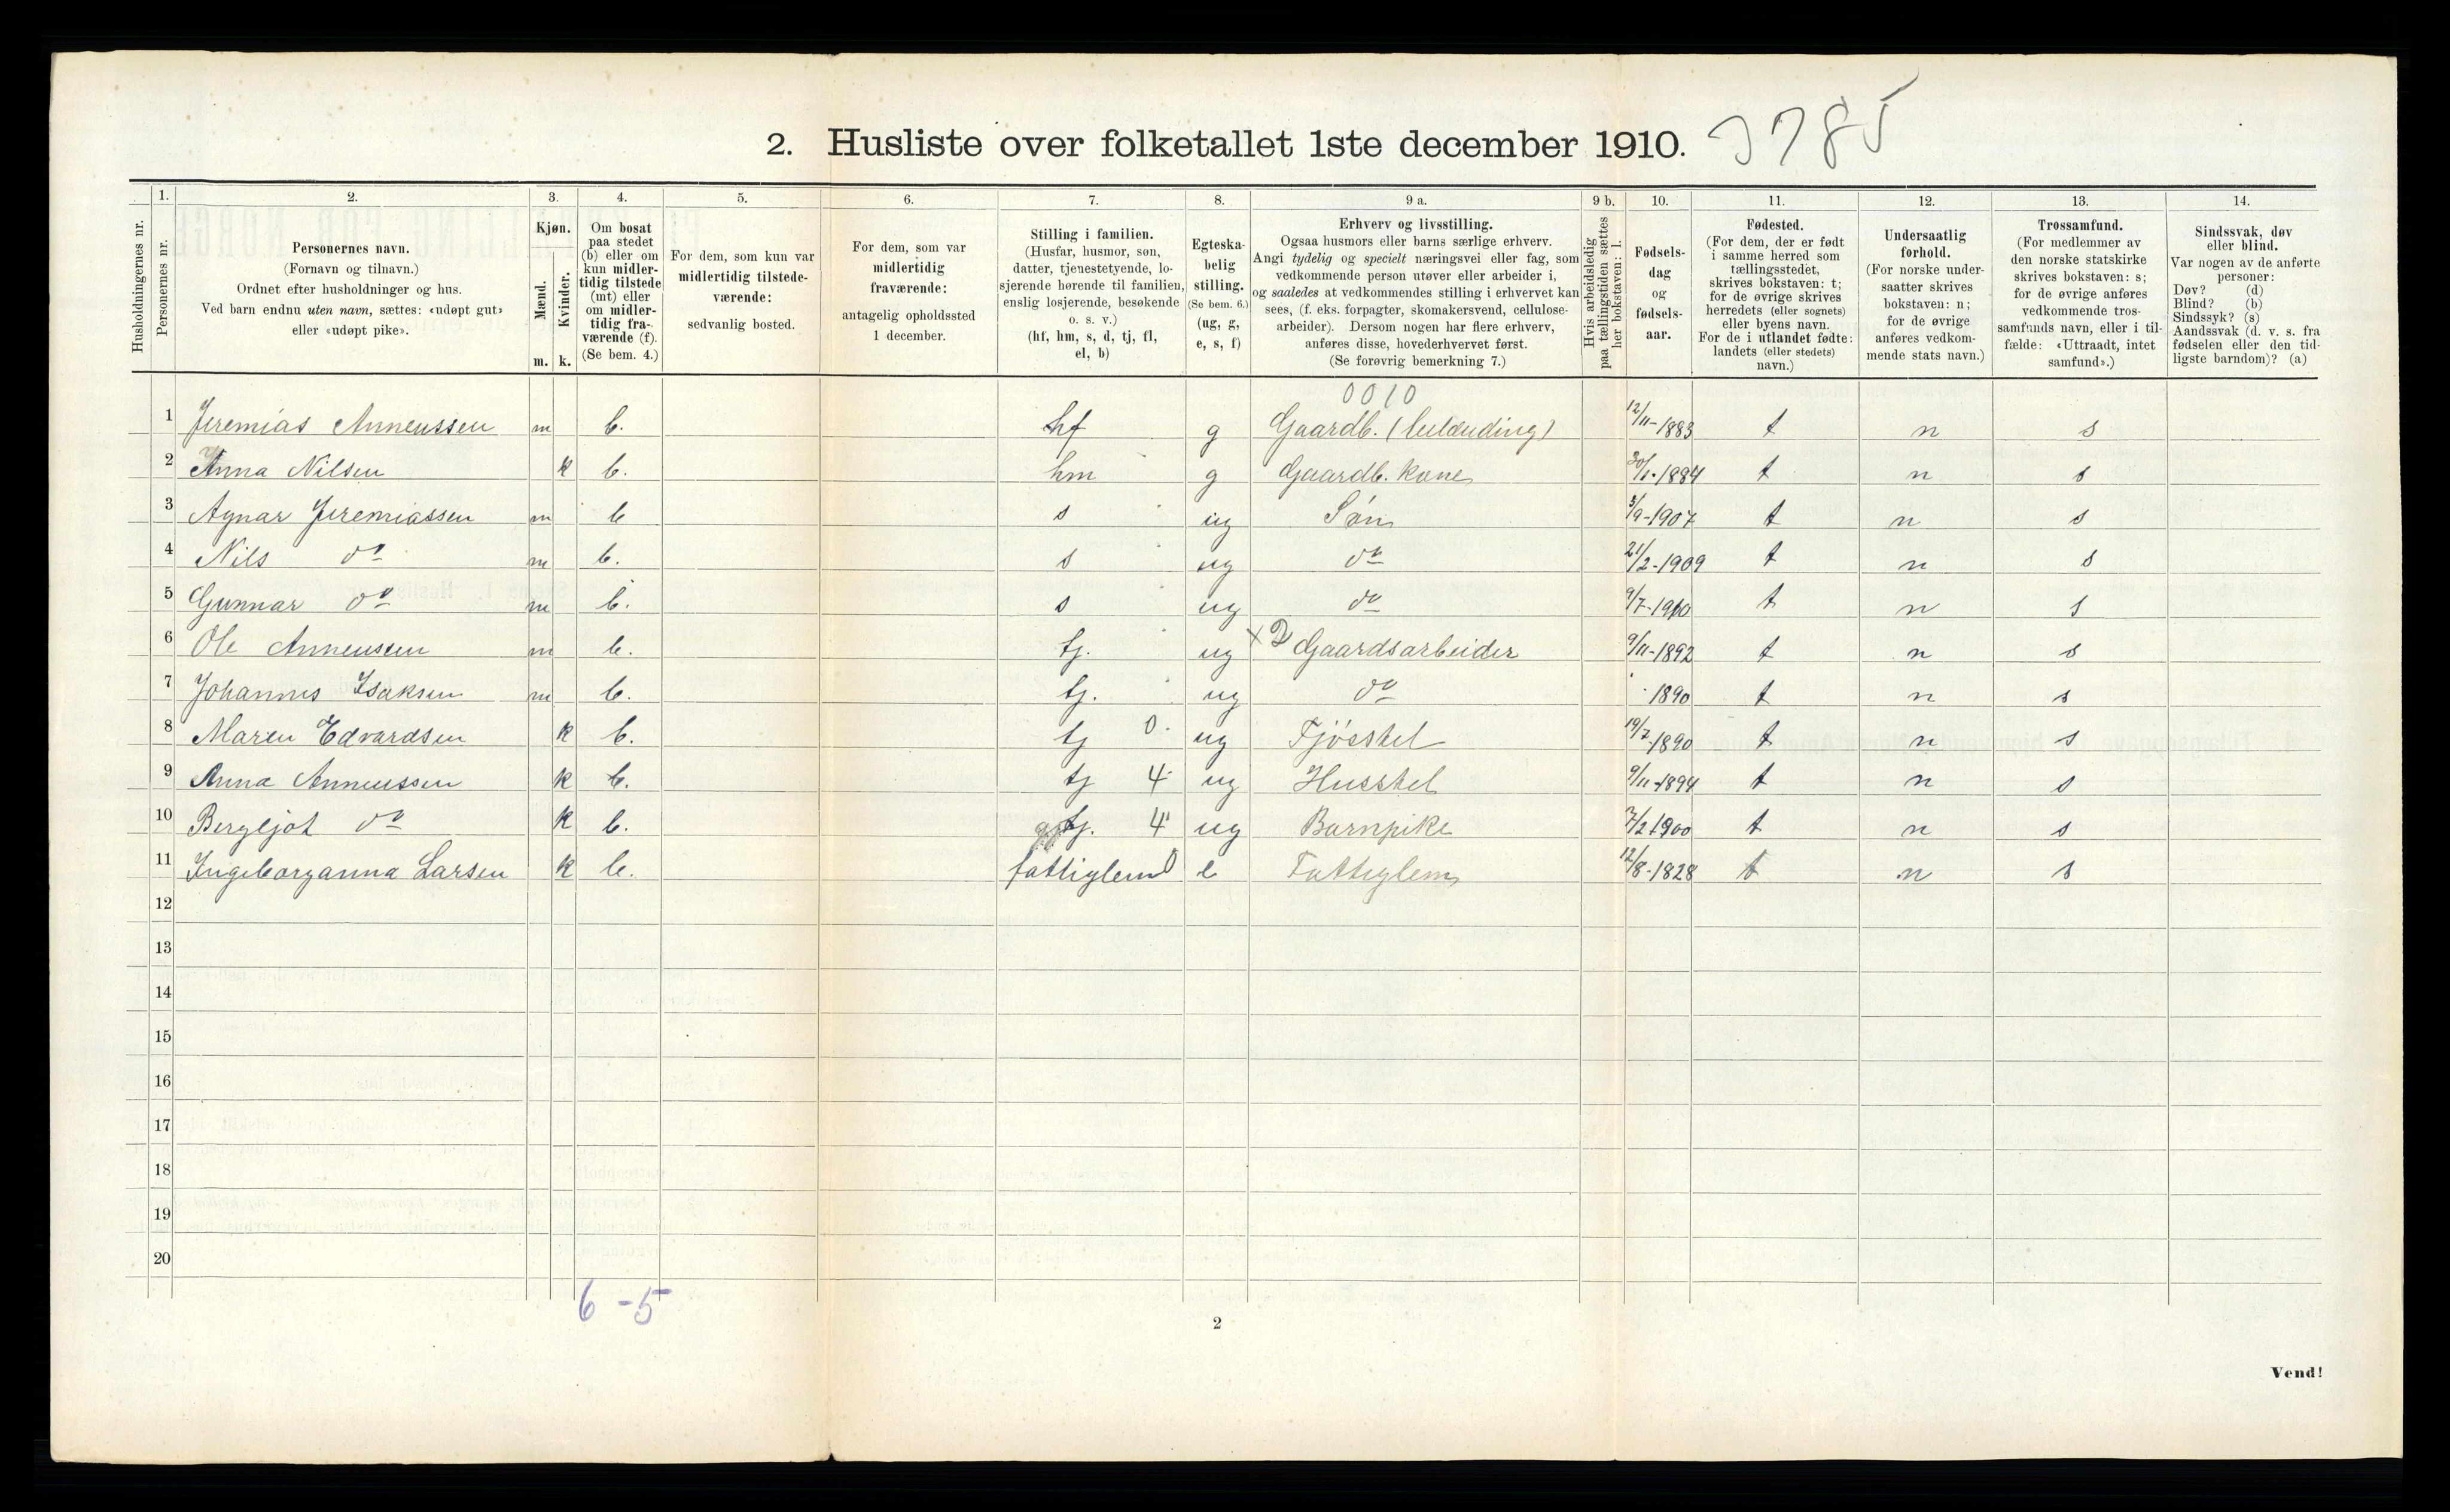 2. Husliste over folketallet 1ste december 1910. 3785
Husholdningernes nr.
1. Personernes nr.
2. Personernes navn. (Fornavn og tilnavn.) Ordnet efter husholdninger og hus. Ved barn endnu uten navn, sættes: «udøpt gut» eller «udøpt pike».
3. Kjøn. Mænd. m. Kvinder. k.
4. Om bosat paa stedet (b) eller om kun midlertidig tilstede (mt) eller om midlertidig fraværende (f). (Se bem. 4.)
5. For dem, som kun var midlertidig tilstedeværende: sedvanlig bosted.
6. For dem, som var midlertidig fraværende: antagelig opholdssted 1 december.
7. Stilling i familien. (Husfar, husmor, søn, datter, tjenestetyende, losjerende hørende til familien, enslig losjerende, besøkende o. s. v.) (hf, hm, s, d, tj, fl, el, b)
8. Egteskabelig stilling. (Se bem. 6.) (ug, g, e, s, f)
9 a. Erhverv og livsstilling. Ogsaa husmors eller barns særlige erhverv. Angi tydelig og specielt næringsvei eller fag, som vedkommende person utøver eller arbeider i, og saaledes at vedkommendes stilling i erhvervet kan sees, (f. eks. forpagter, skomakersvend, cellulosearbeider). Dersom nogen har flere erhverv, anføres disse, hovederhvervet først. (Se forøvrig bemerkning 7.)
9 b. Hvis arbeidsledig paa tællingstiden sættes her bokstaven: l.
10. Fødselsdag og fødselsaar.
11. Fødested. (For dem, der er født i samme herred som tællingsstedet, skrives bokstaven: t; for de øvrige skrives herredets (eller sognets) eller byens navn. For de i utlandet fødte: landets (eller stedets) navn.)
12. Undersaatlig forhold. (For norske undersaatter skrives bokstaven: n; for de øvrige anføres vedkommende stats navn.)
13. Trossamfund. (For medlemmer av den norske statskirke skrives bokstaven: s; for de øvrige anføres vedkommende trossamfunds navn, eller i tilfælde: «Uttraadt, intet samfund».)
14. Sindssvak, døv eller blind. Var nogen av de anførte personer: Døv? (d) Blind? (b) Sindssyk? (s) Aandssvak (d. v. s. fra fødselen eller den tidligste barndom)? (a)
0010
1 Jeremias Anneussen m b. hf g Gaardb. 12/11-1883 t n s
2 Anna Nilsen k b. hm g Gaardb. kone 30/1-1884 t n s
3 Agnar Jeremiassen m b s ug Søn 3/9-1907 t n s
4 Nils do m b. s ug do 21/2-1909 t n s
5 Gunnar do m b. s ug do 9/7-1910 t n s
6 Ole Anneussen m b. tj. ug Gaardsarbeider 9/11-1892 t n s
7 Johannes Isaksen m b. tj. ug do 1890 t n s
8 Maren Edvardsen k b. tj 0 ug Fjösstel 19/7-1890 t n s
9 Anna Anneussen k b. tj 4 ug Husstel 9/11-1894 t n s
10 Bergljot do k b. tj. 4 ug Barnpike 7/2 1900 t n s
11 Ingeborganna Larsen k b. fattiglem e Fattiglem 12/8-1828 t n s
12
13
14
15
16
17
18
19
20
6 - 5
2
Vend!